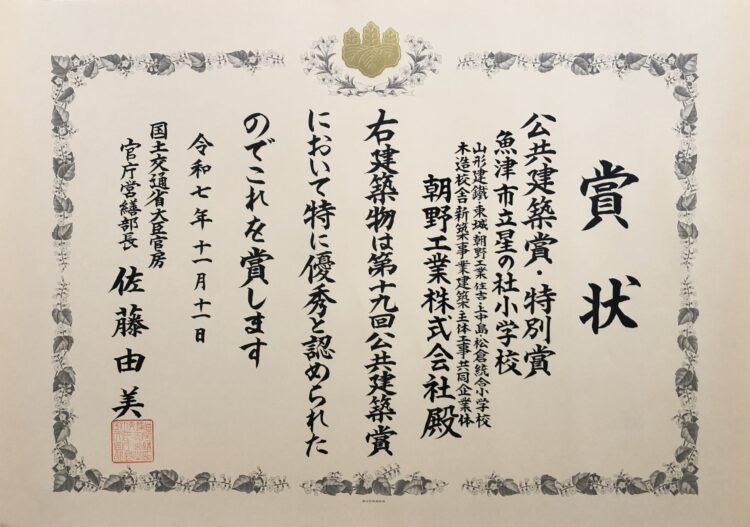 賞状
公共建築賞・特別賞
魚津市立星の杜小学校
山形建鐵・東城・朝野工業・住吉・上中島・松倉統合小学校
木造校舎新築事業建築主体工事共同企業体
朝野工業株式会社殿
右建築物は第十九回公共建築賞
において特に優秀と認められた
のでこれを賞します
令和七年十一月十一日
国土交通省大臣官房
官庁営繕部長 佐藤由美